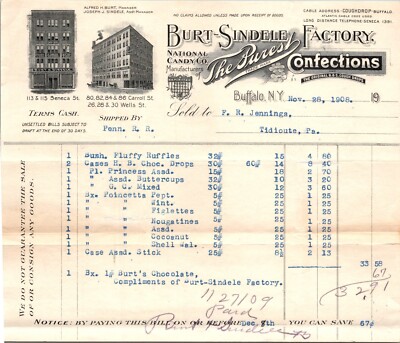 ALFRED H. BURT, MANAGER
JOSEPH J. SINDELE, ASST. MANAGER
NO CLAIMS ALLOWED UNLESS MADE UPON RECEIPT OF GOODS.
CABLE ADDRESS - COUGHDROP - BUFFALO.
ATLANTIC CABLE CODE USED
LONG DISTANCE TELEPHONE-SENECA
BURT-SINDELE FACTORY.
NATIONAL CANDY CO.
Manufacturers
The Purest Confections
THE ORIGINAL H.B. COUGH DROPS
113 & 115 SENECA ST.
80, 82, 84 & 86 CARROLL ST.
26, 28 & 30 WELLS ST.
Buffalo, N.Y. Nov. 28, 1908. 19
TERMS CASH.
UNSETTLED BILLS SUBJECT TO
DRAFT AT THE END OF 30 DAYS.
SHIPPED BY
Penn. R. R.
Sold to F. H. Jennings,
Tidioute, Pa.
WE DO NOT GUARANTEE THE SALE
OF OR CONSIGN ANY GOODS.
1 Bush. Fluffy Ruffles 32# 15 4 80
2 Cases H. B. Choc. Drops 30# 60# 14 8 40
1 Pl. Princess Asd. 30# 15 2 25
1 " Asad. Buttercups 30# 15 2 25
1 " G. G. Mixed 30# 15 2 60
1 Bx. Poincetts Pept. 5# 25 1 25
1 " " Wint. 5# 25 1 25
1 " " Figlettes 5# 25 1 25
1 " " Nougatines 5# 25 1 25
1 " " Assd. 5# 25 1 25
1 " " Cocoanut 5# 25 1 25
1 " " Shell Wal. 5# 25 1 25
1 Case Asad. Stick 25# 8½ 2 13
33 58
67
32,91
1 Bx. 1# Burt's Chocolate,
Compliments of Burt-Sindele Factory.
1/27/09
Paid
NOTICE: BY PAYING THIS BILL ON OR BEFORE Dec. 8th YOU CAN SAVE 67¢